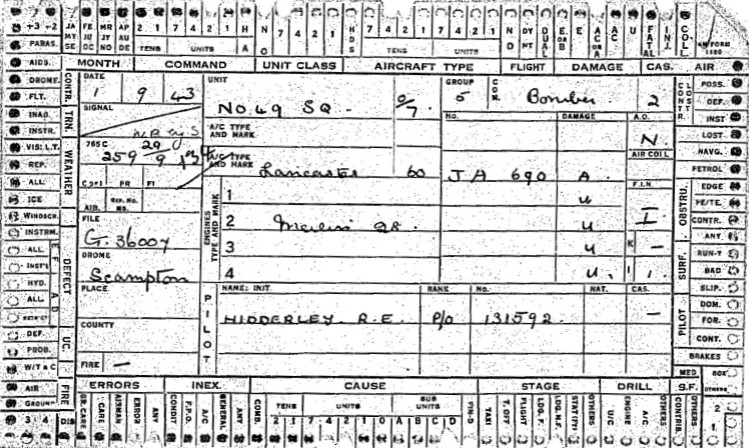 +3 +2 JA MY SE FE JU OC MR JY NO AP AU DE 2 1 7 4 2 1 H A N O 7 4 2 1 HDS 7 4 2 1 7 4 2 1 N O DY MT DUAL E OR B E AC OR A U FATAL INJ. COL AM FORM 1180
TENS UNITS TENS UNITS
MONTH COMMAND UNIT CLASS AIRCRAFT TYPE FLIGHT DAMAGE CAS. AIR
PARAS. AIDS. DROME. FLT. INAD. INSTR. VIS: L.T. REP. ALL ICE WINDSCR. INSTRM. ALL INST'S HYD. ALL DEF. PROB. W/T & C AIR GROUND 3 4
CONTR. TRN. WEATHER DEFECT UC. FIRE DIS
DATE 1 9 43
UNIT NO. 49 SQ.
GROUP 5
COM. Bomber 2
SIGNAL
765 C 259
A/C TYPE AND MARK
NO. DAMAGE A.O. N.
A/C TYPE AND MARK Lancaster 60 JA 690 A AIR COLL
PR FI
AIR.
F.I.N. I
FILE G. 36007
ENGINES TYPE AND MARK
1 u
2 Merlin 28. u
3 u
4 u.
DROME Scampton
PLACE
COUNTY
FIRE —
PILOT
NAME: INIT. RANK No. NAT. CAS.
HIDDERLEY. R.E. P/O 131592. —
CONTR. OBSTRU. SURF. PILOT
POSS. DEF. INST LOST NAVG. PETROL EDGE PE/TE. CONTR. ANY RUN-Y BAD SLIP. DOM. FOR. CONT. BRAKES
MED BOX OTHERS
ERRORS INEX. CAUSE STAGE DRILL S.F.
CARE AIRMAN ERROR ANY CONDIT F.P.O. A/C GENERAL ANY COMB. TENS UNITS SUB UNITS 2 1 7 4 2 1 0 A B C D FIN-D TAXI T. OFF FLIGHT LDG. F. LDG. N.F. STAT(PY) OTHERS U/C ENGINE A/C OTHERS CONTRIB. OTHERS 2 1